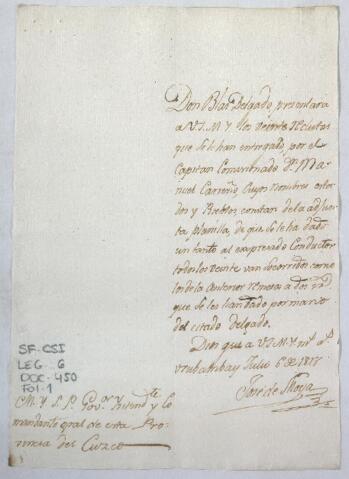 Don Blas Delgado, presentara
a V.S.M.Y. los veinte reclutas
que sele han entregado, por el
Capitan Comicionado Dn. Ma-
nuel Carreño, Cuyos Nombres esta-
dos y Pueblos, constan dela adjun-
ta planilla, de que se le ha dado
un tanto al expresado Conductor
todos los veinte van socorridos como
los dela anterior remesa a dos rrs.
que se les han dado por mano
del citado Delgado.
Dios gue. a V.S.M.Y. ms. as.
Urubamba y Julio 6 de 1817
Jose de Moya
M. Y. S. P. Gov.or Intend.te y Co
mandante gral de esta Pro-
vincia del Cuzco
SF-CSI
LEG. 6
DOC-450
Fol-1